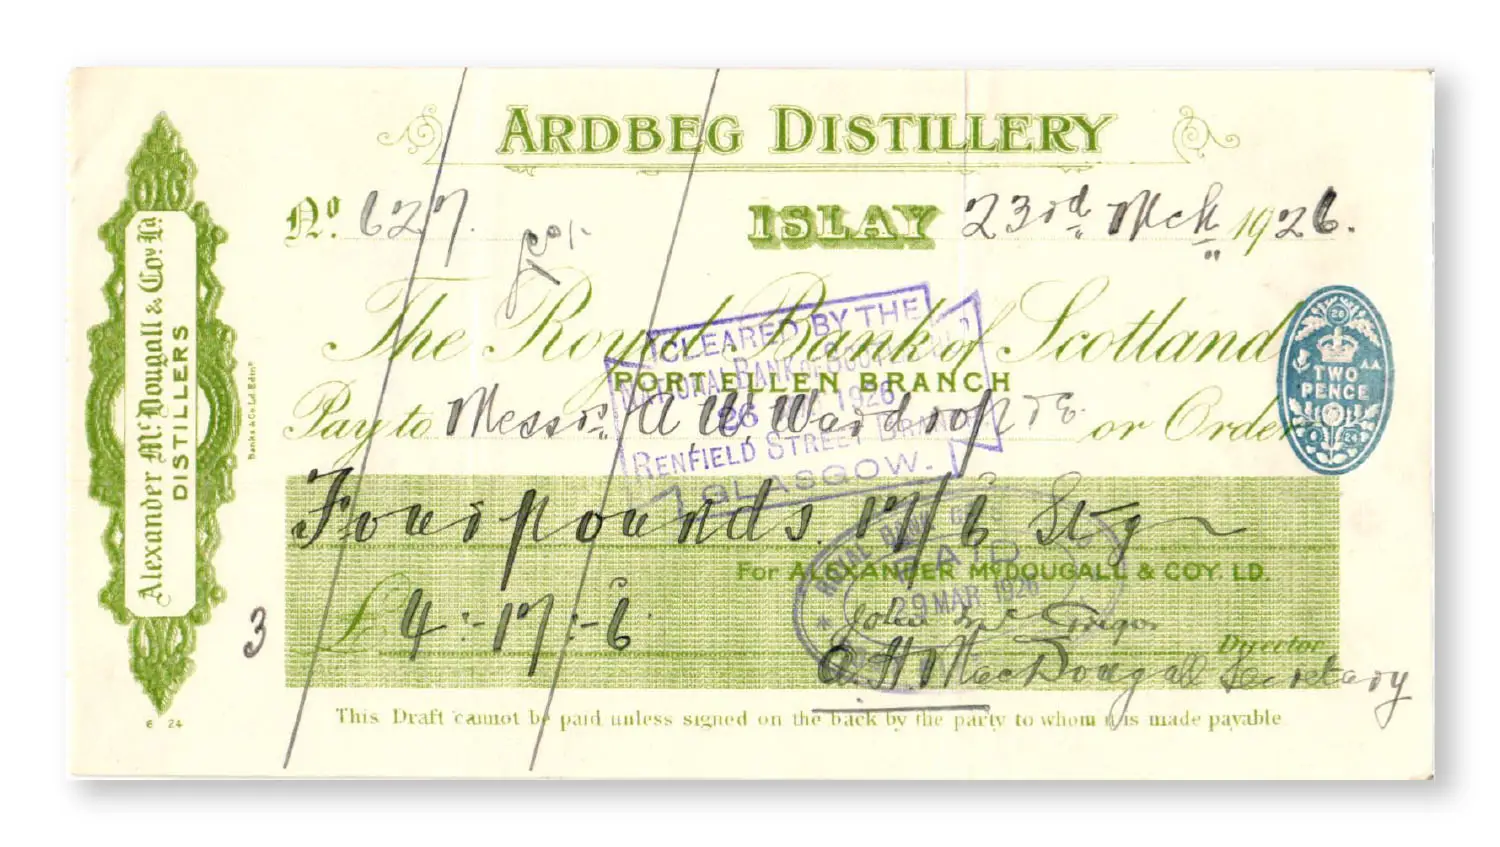 ARDBEG DISTILLERY
No. 627.
ISLAY 23rd Mch 1926.
The Royal Bank of Scotland
PORT ELLEN BRANCH
Pay to Messrs A. W. Wardrop or Order
Four pounds. 17/6 Stg
For ALEXANDER McDOUGALL & COY. LD.
£ 4:-17:-6
John McGregor
Director
A. H. MacDougall Secretary
This Draft cannot be paid unless signed on the back by the party to whom it is made payable
Alexander McDougall & Coy. Ld
DISTILLERS
Banks & Co Ld. Edinr
6 24
3
TWO
PENCE
CLEARED BY THE
NATIONAL BANK OF SCOTLAND
26 1926
RENFIELD STREET BRANCH
GLASGOW.
ROYAL BANK
PAID
29 MAR 1926